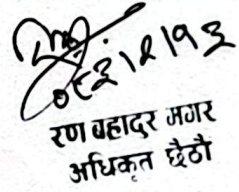 ०८३।२।१३
रण बहादुर मगर
अधिकृत छैठौ